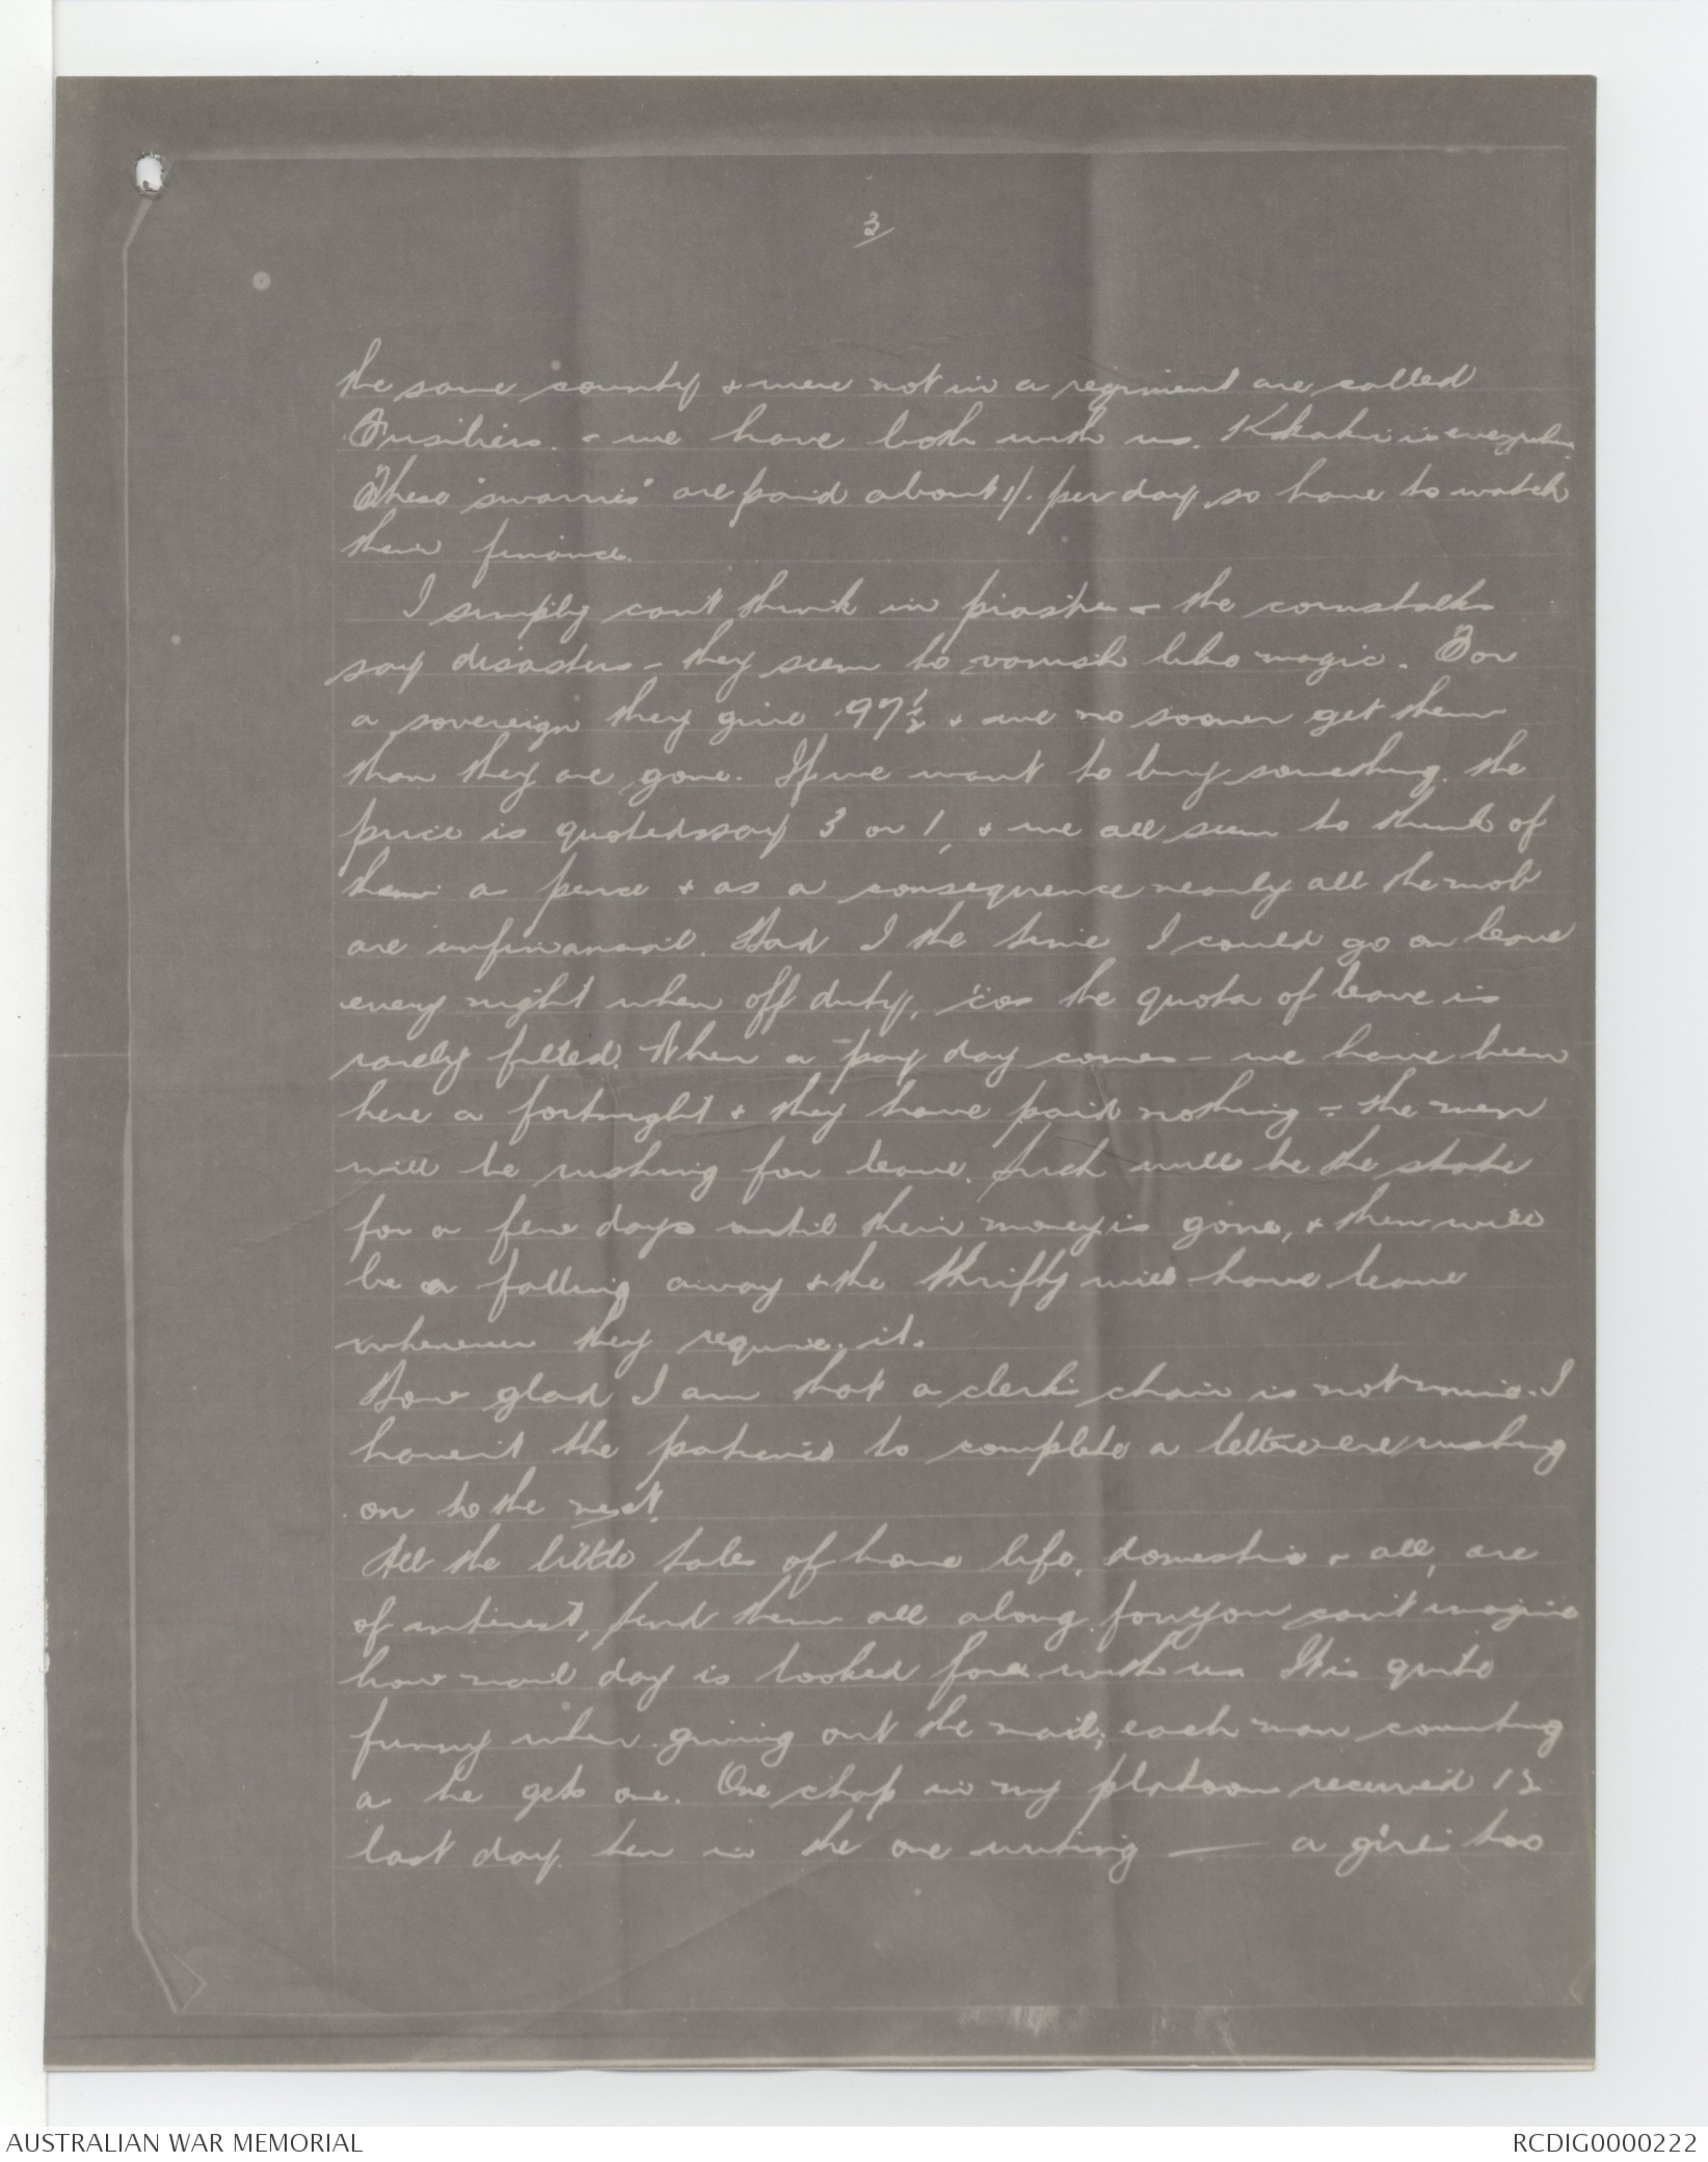 3
the same county & were not in a regiment are called
Fusiliers. - we have both with us. Khaki is everywhere
These "swarries" are paid about 1/. per day, so have to watch
their finance.
I simply can't think in piastre - the cornstalks
say disasters - they seem to vanish like magic. For
a sovereign they give 97½ & we no sooner get them
than they are gone. If we want to buy something the
price is quoted say 3 or 1, & we all seem to think of
them as pence & as a consequence nearly all the mob
are unfinancial. Had I the time I could go on leave
every night when off duty, 'cos the quota of leave is
rarely filled. When a pay day comes - we have been
here a fortnight & they have paid nothing - the men
will be rushing for leave. Such will be the state
for a few days until their money is gone, & then will
be a falling away & the thrifty will have leave
whenever they require it.
How glad I am that a clerk's chair is not mine. I
haven't the patience to complete a letter ere rushing
on to the next.
All the little tales of home life, domestic & all, are
of interest, send them all along for you can't imagine
how mail day is looked for with us. It is quite
funny when giving out the mail; each man counting
as he gets one. One chap in my platoon received 13
last day. ten in the one writing — a girl's too
AUSTRALIAN WAR MEMORIAL
RCDIG0000222